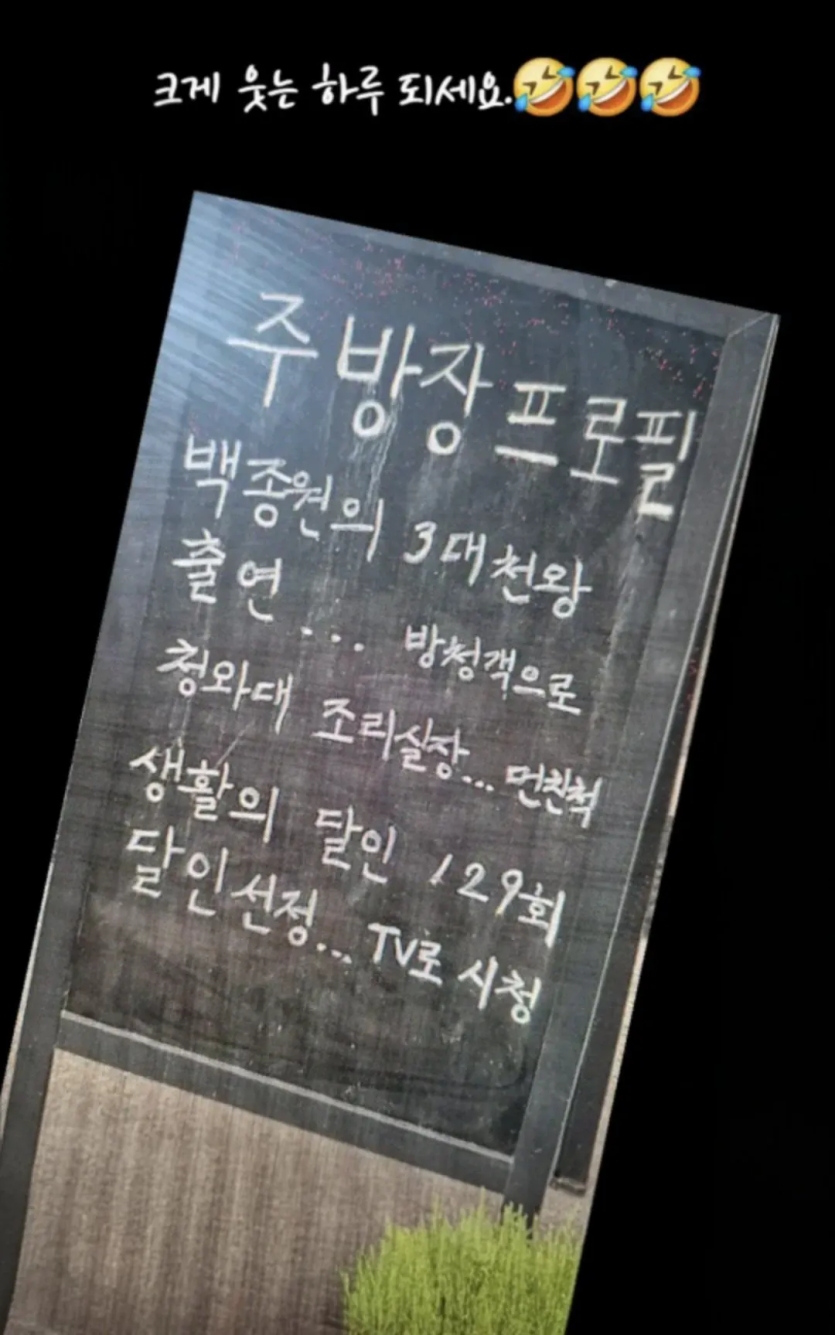 크게 웃는 하루 되세요.🤣🤣🤣
주방장 프로필
백종원의 3대천왕
출연... 방청객으로
청와대 조리실장... 먼친척
생활의 달인 129회
달인선정... TV로 시청